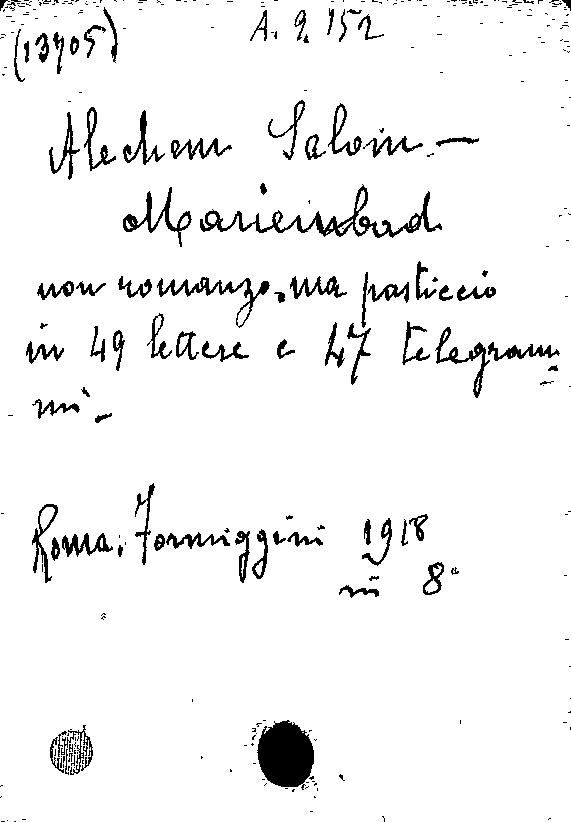 (13705)
A. 9. 152
Alechem Salom -
Marienbad
non romanzo, ma pasticcio
in 49 lettere e 47 telegram=
mi -
Roma. Formiggini 1918
in 8°